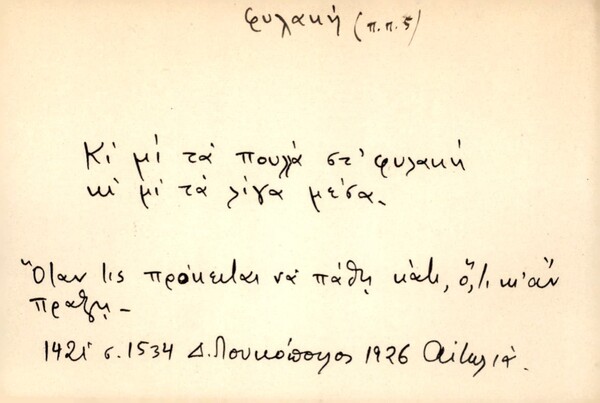 φυλακή (π.π. 5)
Κι μι τα πουλλά στ' φυλακή
κι μι τα λίγα μέσα.
Όταν τις πρόκειται να πάθη κάτι, ό,τι κι' αν
πράξη.–
1421 σ. 1534 Δ. Λουκόπουλος 1926 Αιτωλία.